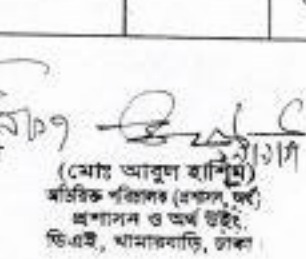 (মোঃ আবুল হাশিম)
অতিরিক্ত পরিচালক (প্রশাসন, অর্থ)
প্রশাসন ও অর্থ উইং
ডিএই, খামারবাড়ি, ঢাকা।